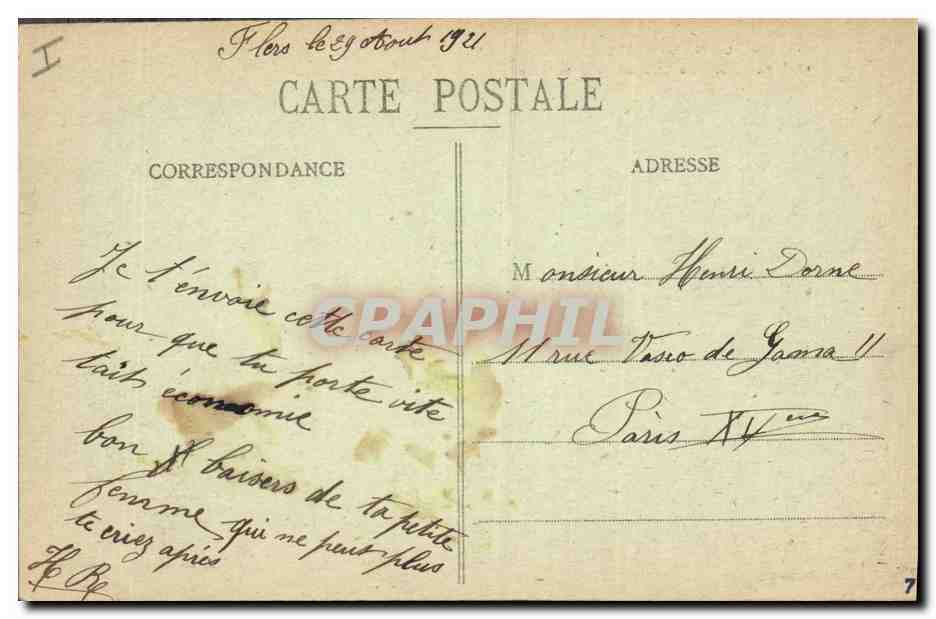 I
Flers le 29 Aout 1921
CARTE POSTALE
CORRESPONDANCE
ADRESSE
Je t'envoie cette carte
pour que tu porte vite
tait économie
bon baisers de ta petite
femme qui ne peut plus
te criez après
H R
Monsieur Henri Dorne
11 rue Vasco de Gama 11
Pàris XVème
CPAPHIL
7